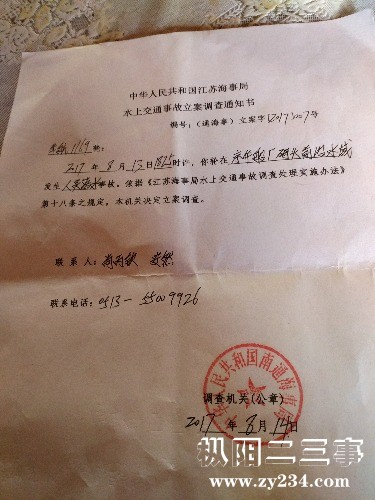 中华人民共和国江苏海事局
水上交通事故立案调查通知书
编号：（通海事）立案字[2017]07号
1169轮：
2017 年 8 月 13 日 1815 时许，你轮在 船厂 水域
发生 人员落水 事故，依据《江苏海事局水上交通事故调查处理实施办法》
第十八条之规定，本机关决定立案调查。
联系人：
联系电话：0513-55009926
中华人民共和国南通海事局
调查机关（公章）
2017 年 8 月 14 日
枞阳二三事
www.zy234.com